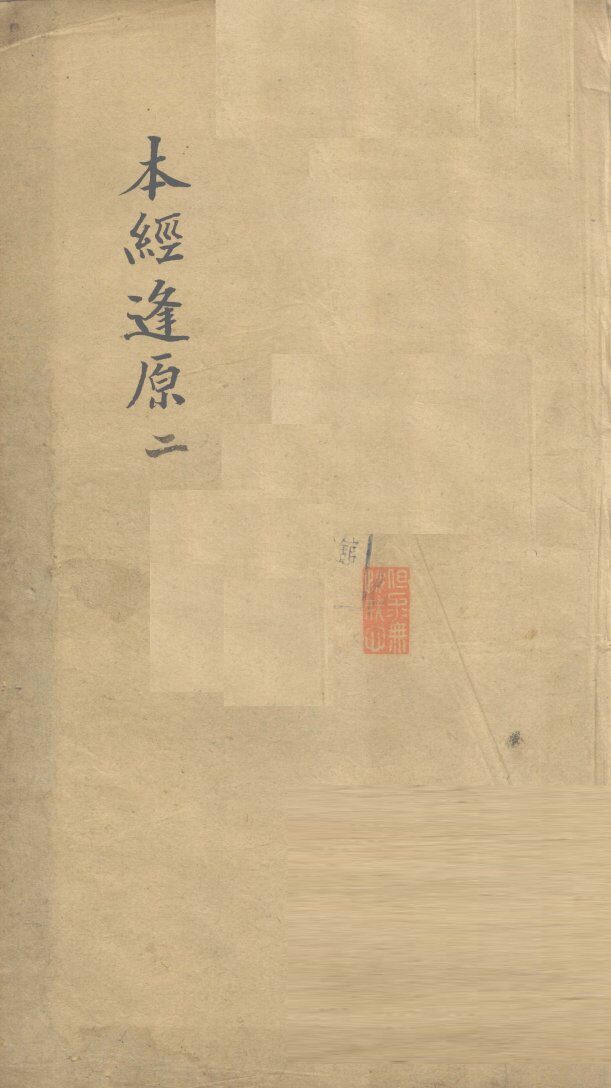 本經逢原 二
館